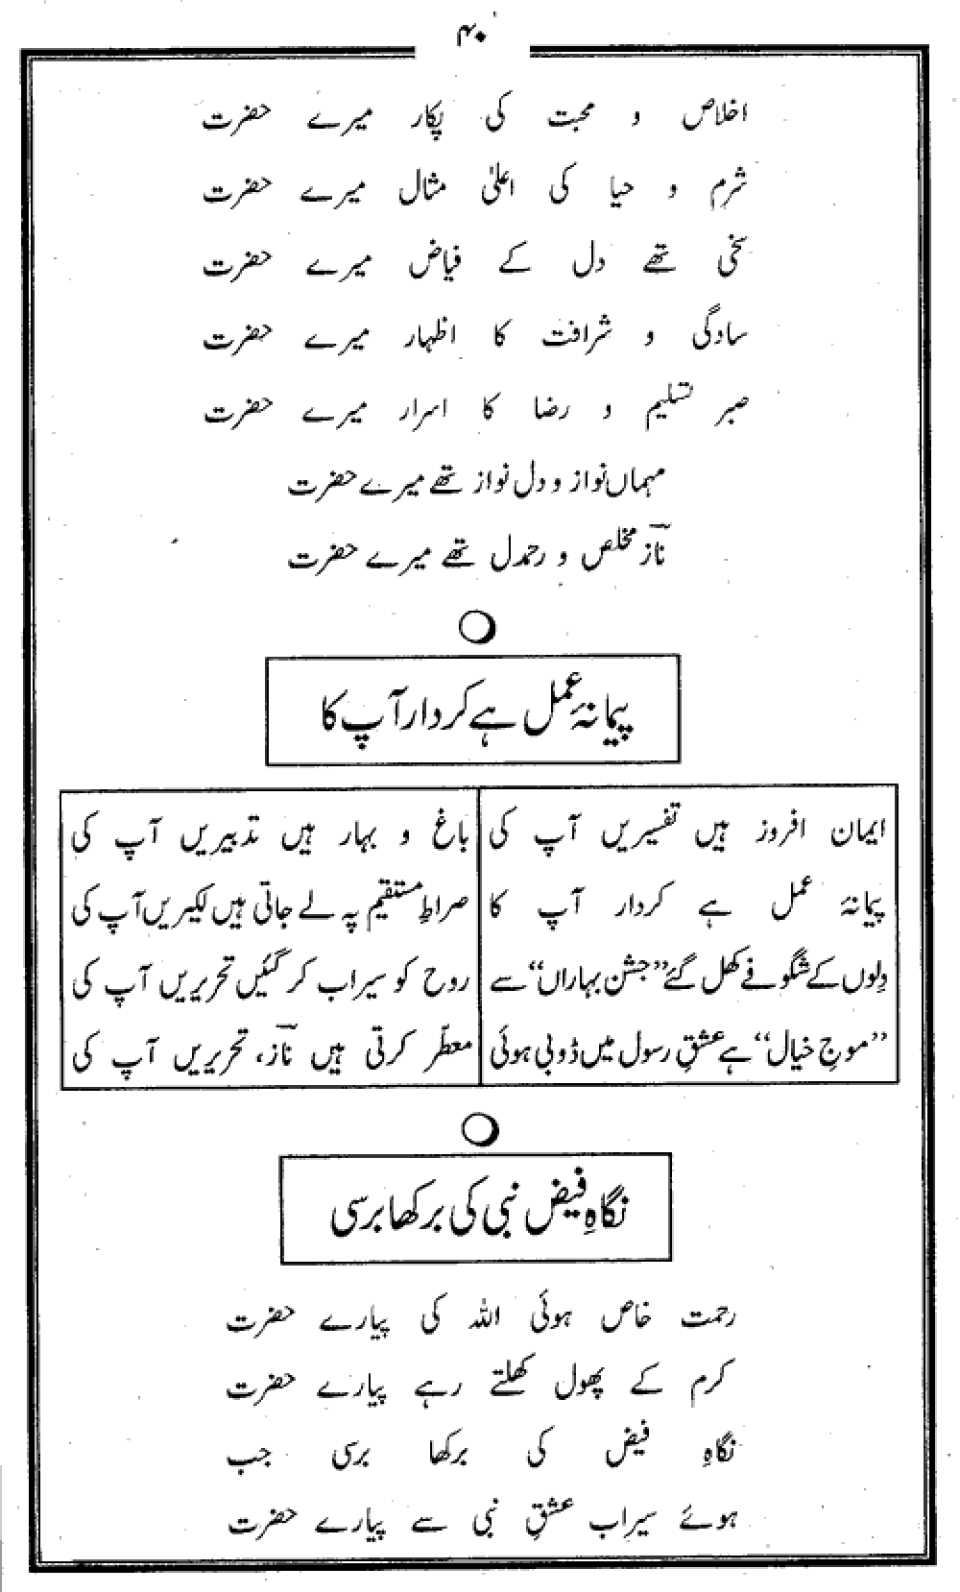 ۴۰
اخلاص و محبت کی پکار میرے حضرت
شرم و حیا کی اعلیٰ مثال میرے حضرت
سخی تھے دل کے فیاض میرے حضرت
سادگی و شرافت کا اظہار میرے حضرت
صبر تسلیم و رضا کا اسرار میرے حضرت
مہماں نواز و دل نواز تھے میرے حضرت
نازؔ مخلص و رحمدل تھے میرے حضرت
پیمانۂ عمل ہے کردار آپ کا
ایمان افروز ہیں تفسیریں آپ کی باغ و بہار ہیں تدبیریں آپ کی
پیمانۂ عمل ہے کردار آپ کا صراطِ مستقیم پہ لے جاتی ہیں لکیریں آپ کی
دِلوں کے شگوفے کھل گئے ”جشن بہاراں“ سے روح کو سیراب کر گئیں تحریریں آپ کی
”موجِ خیال“ ہے عشقِ رسول میں ڈوبی ہوئی معطّر کرتی ہیں نازؔ، تحریریں آپ کی
نگاہِ فیض نبی کی برکھا برسی
رحمت خاص ہوئی اللہ کی پیارے حضرت
کرم کے پھول کھلتے رہے پیارے حضرت
نگاہِ فیض کی برکھا برسی جب
ہوئے سیراب عشقِ نبی سے پیارے حضرت